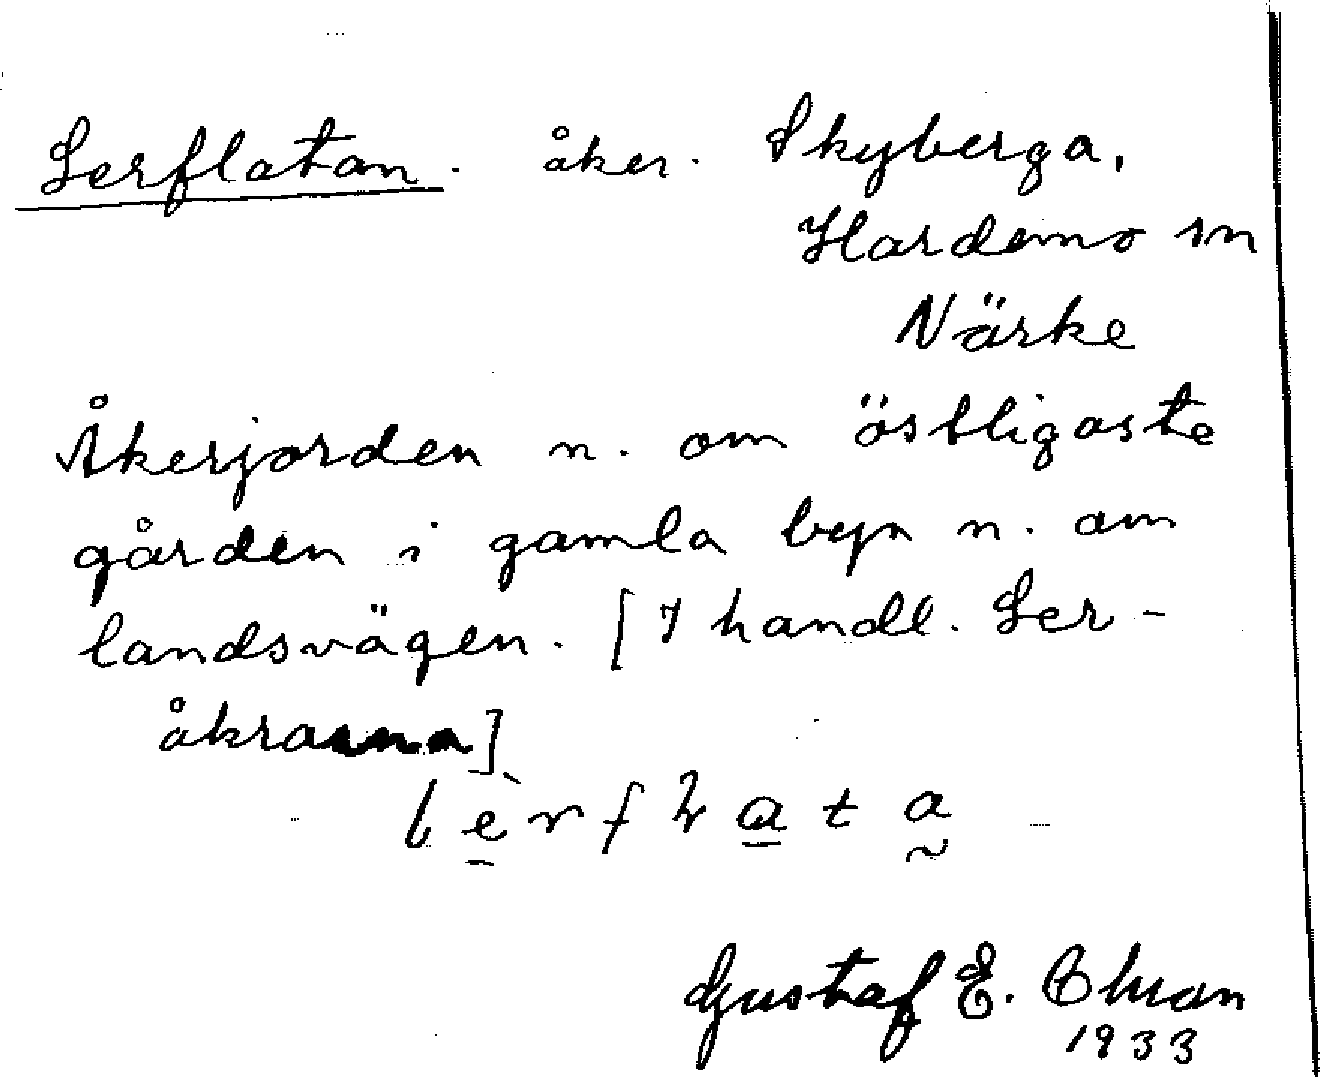 Lerflatan. åker. Skyberga,
Hardemo sn
Närke
Åkerjorden n. om östligaste
gården i gamla byn n. om
landsvägen. [I handl. Ler-
åkrarna]
Gustaf E.
1933